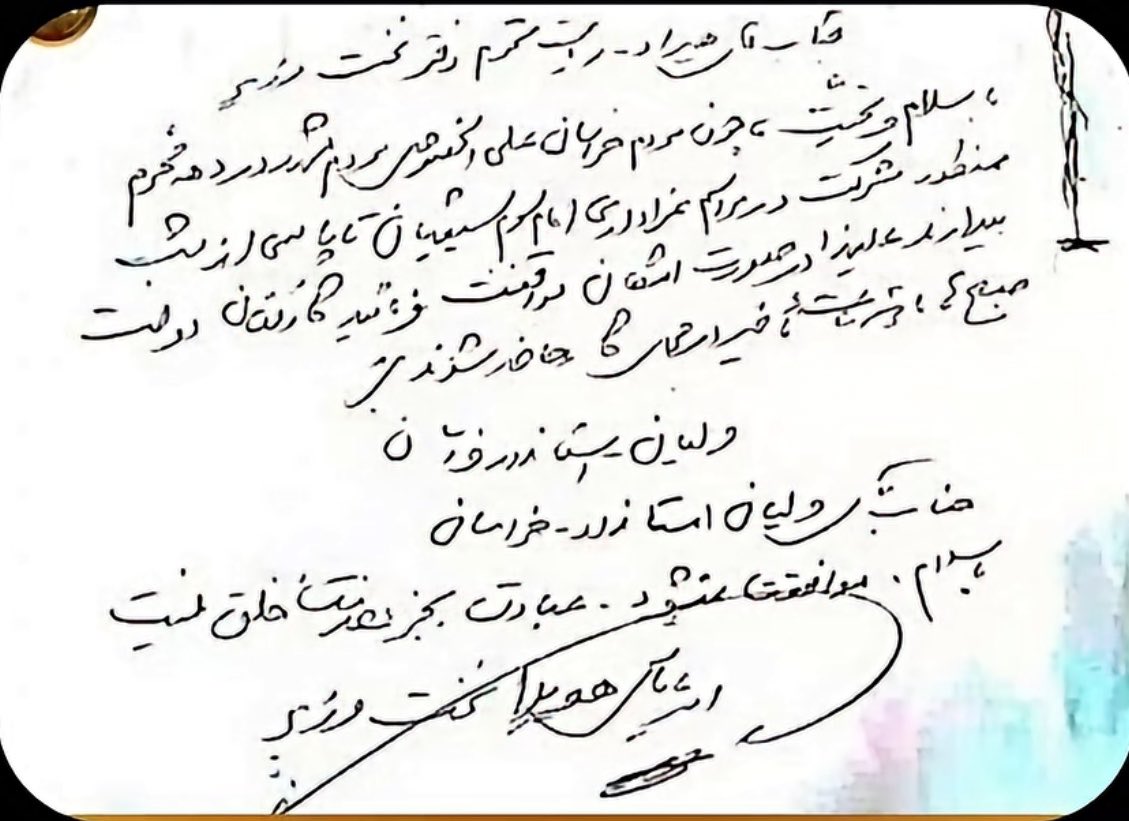 جناب آقای هیراد - ریاست محترم دفتر نخست وزیر
با سلام و تحیت، چون مردم خراسان علی الخصوص مردم مشهد در دهه محرم
بمنظور شرکت در مراسم عزاداری امام سوم شیعیان تا پاسی از شب
بیدارند علیهذا در صورت امکان موافقت فرمائید کارکنان دولت
صبح ها با تأخیر در محل کار حاضر شوند
ولیان - استاندار خراسان
جناب آقای ولیان استاندار - خراسان
با سلام. موافقت میشود. عبادت بجز خدمت خلق نیست
امیرعباس هویدا نخست وزیر